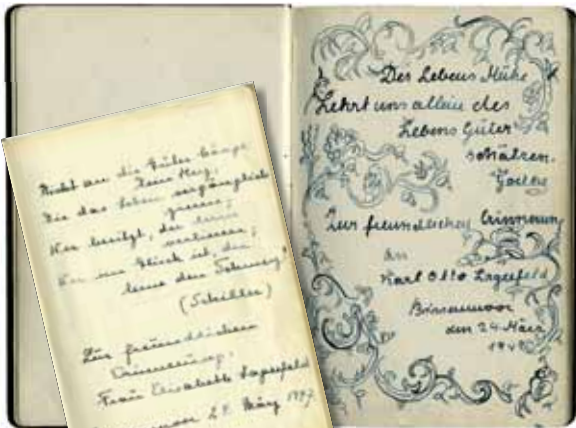 Nicht an die Güter hänge
Dein Herz,
Die das Leben vergänglich
zieren;
Wer besitzt, der lerne
verlieren;
Wer im Glück ist, der
lerne den Schmerz!
(Schiller)
Zur freundlichen
Erinnerung.
Frau Elisabeth Lagerfeld
24. März 1947.
Des Lebens Mühe
Lehrt uns allein des
Lebens Güter
schätzen.
Goethe
Zur freundlichen Erinnerung
an
Karl Otto Lagerfeld
Bissenmoor
den 24. März